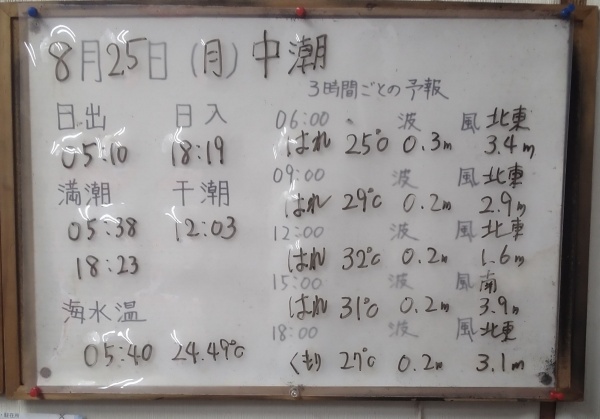 8月25日 (月) 中潮
3時間ごとの予報
日出 日入
05:10 18:19
満潮 干潮
05:38 12:03
18:23
海水温
05:40 24.49℃
06:00 波 風 北東
はれ 25° 0.3m 3.4m
09:00 波 風 北東
はれ 29℃ 0.2m 2.9m
12:00 波 風 北東
はれ 32℃ 0.2m 1.6m
15:00 波 風 南
はれ 31℃ 0.2m 3.9m
18:00 波 風 北東
くもり 27℃ 0.2m 3.1m